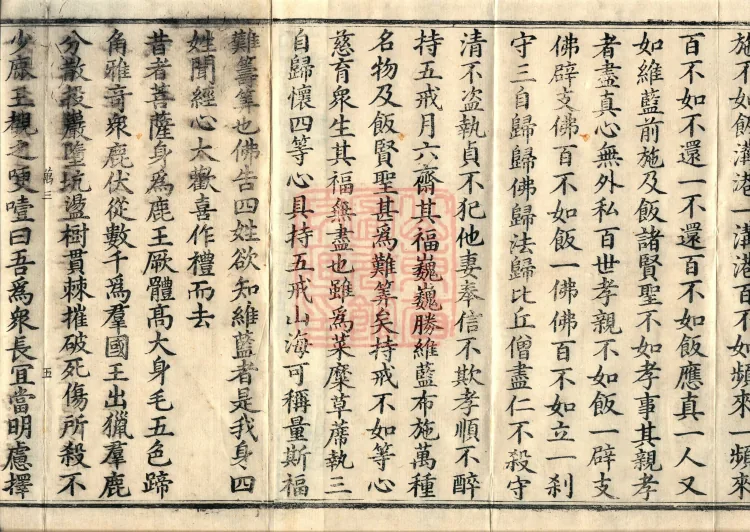 施不如飯溝港一溝港百不如頻來一頻來
百不如不還一不還百不如飯應真一人又
如維藍前施及飯諸賢聖不如孝事其親孝
者盡真心無外私百世孝親不如飯一辟支
佛辟支佛百不如飯一佛佛百不如立一刹
守三自歸歸佛歸法歸比丘僧盡仁不殺守
清不盜執貞不犯他妻奉信不欺孝順不醉
持五戒月六齋其福巍巍勝維藍布施萬種
名物及飯賢聖甚爲難算矣持戒不如等心
慈育衆生其福無盡也雖爲菜糜草蓆執三
自歸懷四等心具持五戒山海可稱量斯福
難籌算也佛告四姓欲知維藍者是我身四
姓聞經心大歡喜作禮而去
昔者菩薩身爲鹿王厥體高大身毛五色蹄
角雅奇衆鹿伏從數千爲羣國王出獵羣鹿
分散投巖墮坑盪樹貫棘摧破死傷所殺不
萬三 五
少鹿王覩之哽噎曰吾爲衆長宜當明慮擇